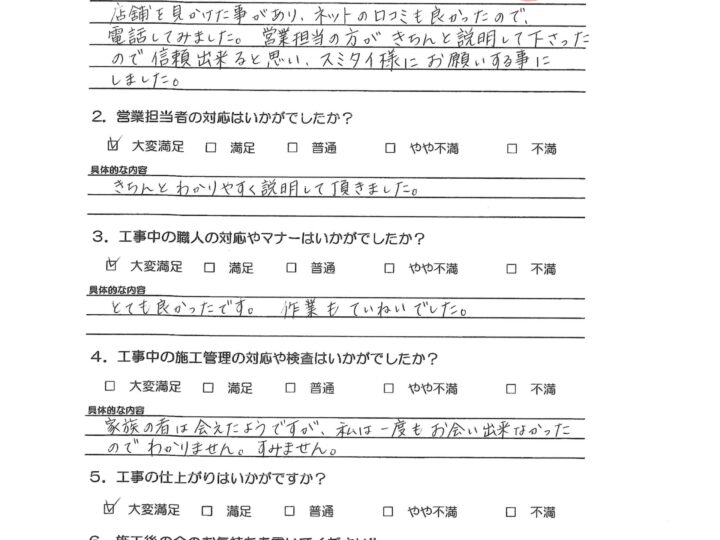 店舗を見かけた事があり、ネットの口コミも良かったので、
電話してみました。 営業担当の方が きちんと説明して下さった
ので信頼出来ると思い、スミタイ様に お願いする事に
しました。
2．営業担当者の対応はいかがでしたか？
☑ 大変満足 □ 満足 □ 普通 □ やや不満 □ 不満
具体的な内容
きちんと わかりやすく説明して頂きました。
3．工事中の職人の対応やマナーはいかがでしたか？
☑ 大変満足 □ 満足 □ 普通 □ やや不満 □ 不満
具体的な内容
とても良かったです。 作業も ていねいでした。
4．工事中の施工管理の対応や検査はいかがでしたか？
□ 大変満足 □ 満足 □ 普通 □ やや不満 □ 不満
具体的な内容
家族の者は会えたようですが、私は一度も お会い出来なかった
のでわかりません。すみません。
5．工事の仕上がりはいかがですか？
☑ 大変満足 □ 満足 □ 普通 □ やや不満 □ 不満